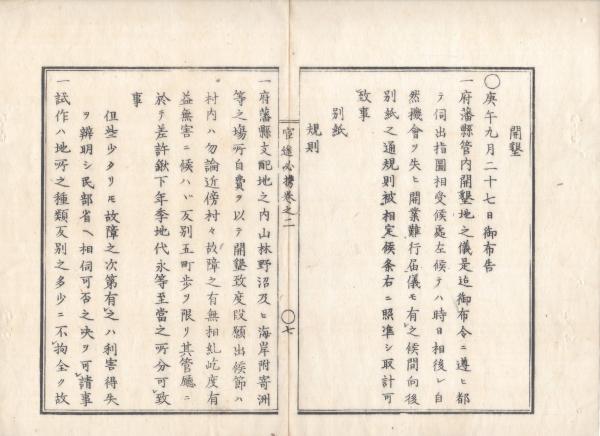 開墾
○庚午九月二十七日御布告
一府藩縣管内開墾地之儀是迠御布令ニ遵ヒ都
テ伺出指圖相受候處左候テハ時日相後レ自
然機會ヲ失ヒ開業難行届儀モ有之候間向後
別紙之通規則被相定候条右ニ照準シ取計可
致事
別紙
規則
官途必携巻之二
○七
一府藩縣支配地之内山林野沼及ヒ海岸附寄洲
等之場所自費ヲ以テ開墾致度段願出候節ハ
村内ハ勿論近傍村々故障之有無相糺屹度有
益無害ニ候ハヾ反別五町歩ヲ限リ其管廳ニ
於テ差許鍬下年季地代永等至當之所分可致
事
但些少タリモ故障之次第有之ハ利害得失
ヲ辨明シ民部省ヘ相伺可否之决ヲ可請事
一試作ハ地所之種類反別之多少ニ不拘全ク故